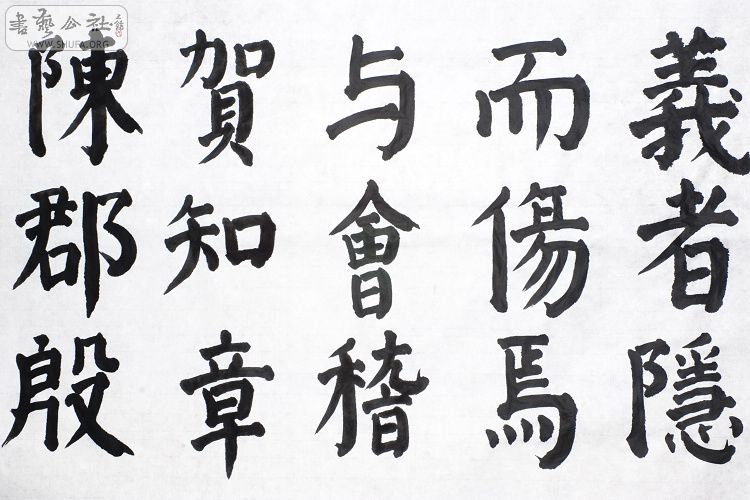 義者隱
而傷焉
与會稽
賀知章
陳郡殷
書藝公社
WWW.SHUFA.ORG